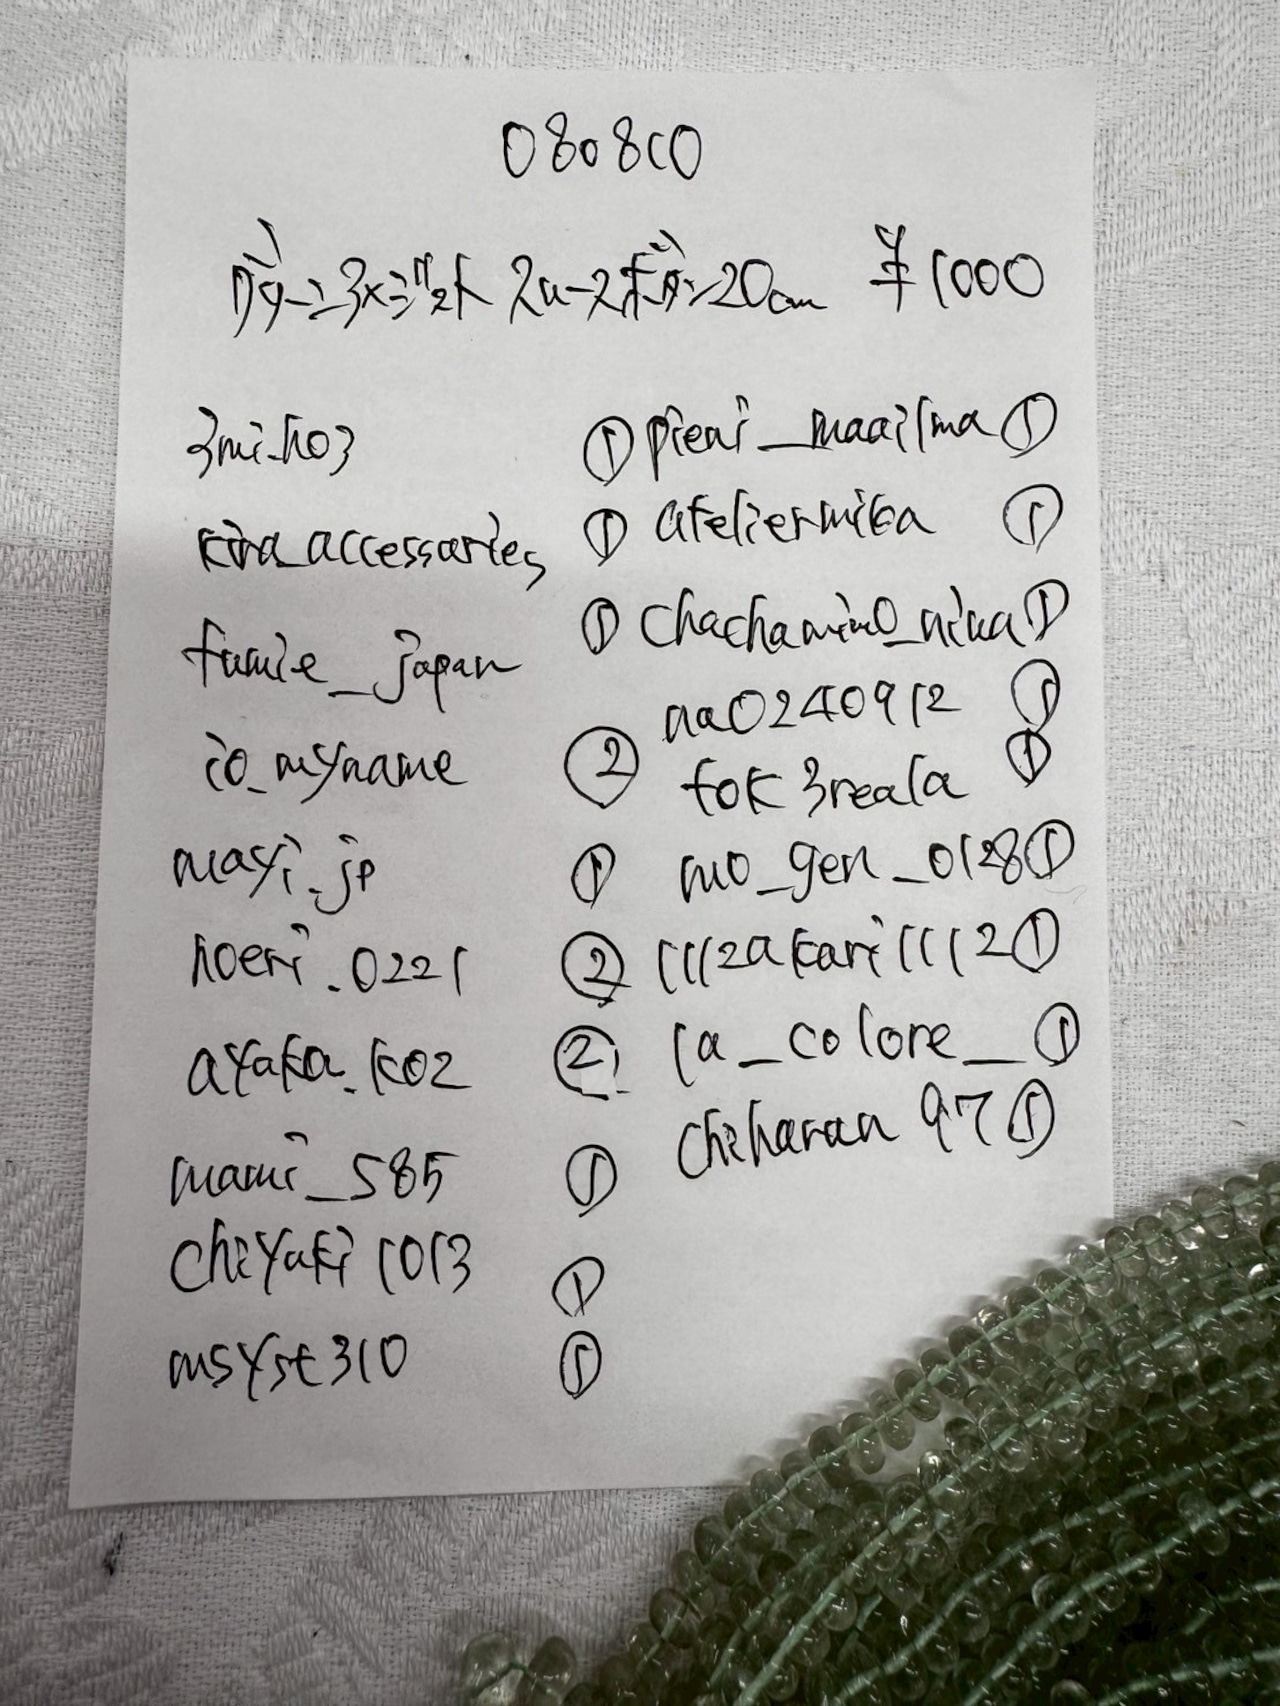 080810
グリーンアメジスト スムースボタン20cm ¥1000
3mi.ho3 ①
kira_accessaries ①
fumie_japan ①
io_myname ②
mayi.jp ①
hoeri.0221 ②
ayaka.k02 ②
mami_585 ①
chiyaki1013 ①
msyst310 ①
pieni_maailma ①
ateliermika ①
chachamimo_nina ①
na0240912 ①
fok3reala ①
mo_gen_0128 ①
1112akari1112 ①
la_colore_ ①
chiharan97 ①